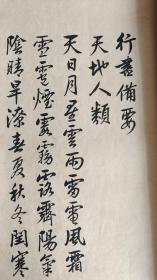 行書備要
天地人類
天日月星雲雨雷電風霜
雪雹煙霞霧露霽陽氣
陰晴旱潦春夏秋冬閏寒